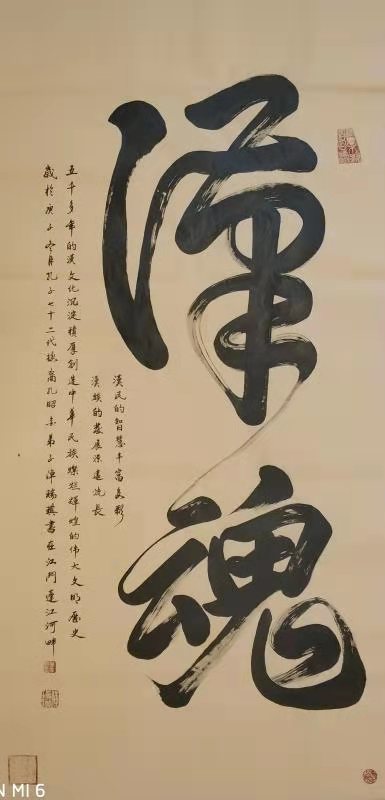 漢魂
漢民的智慧丰富多彩
漢族的發展源遠流長
五千多年的漢文化沉淀積厚創造中華民族燦烂輝煌的伟大文明歷史
歲於庚子冬月孔子七十二代孫裔孔昭弟子書在江门蓬江河畔
N MI 6